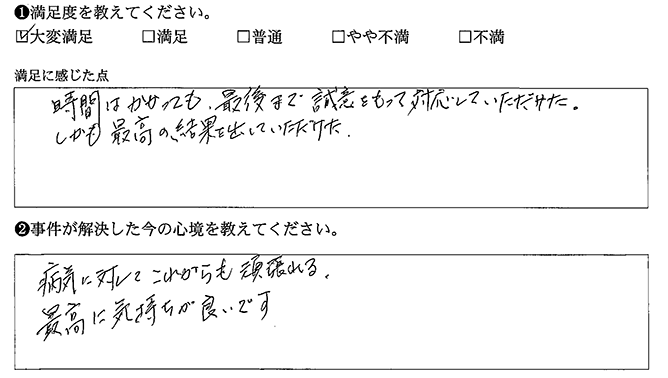 ❶満足度を教えてください。
☑大変満足 □満足 □普通 □やや不満 □不満
満足に感じた点
時間はかかっても、最後まで誠意をもって対応していただけた。
しかも最高の結果を出していただけた。
❷事件が解決した今の心境を教えてください。
病気に対してこれからも頑張れる。
最高に気持ちが良いです